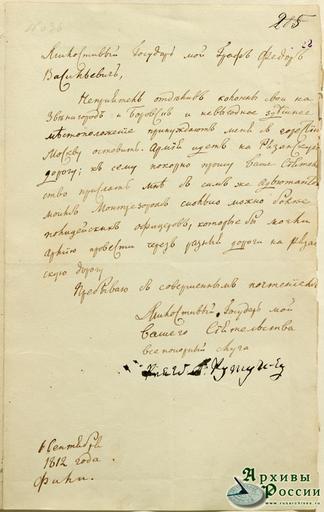 215
Милостивый Государь мой Графъ Федоръ
Васильевичъ,
Непріятель отделивъ колонны свои на
Звенигородъ и Боровскъ и невыгодное здешнее
местоположеніе принуждаютъ меня съ горестію
Москву оставить. Армія идетъ на Рязанскую
дорогу; къ сему покорно прошу Ваше Сіятель
ство прислать мне съ симъ же адъютантомъ
моимъ Монтрезоромъ сколько можно более
полицейскихъ офицеровъ, которые бы могли
армію провести чрезъ разныя дороги на Ряза
скую дорогу.
Пребываю съ совершеннымъ почтеніемъ
Милостивый Государь мой
Вашего Сіятельства
всепокорный слуга
Князь Г. Кутузовъ
Сентября
1812 года.
Фили.
Архивы
России
www.rusarchives.ru